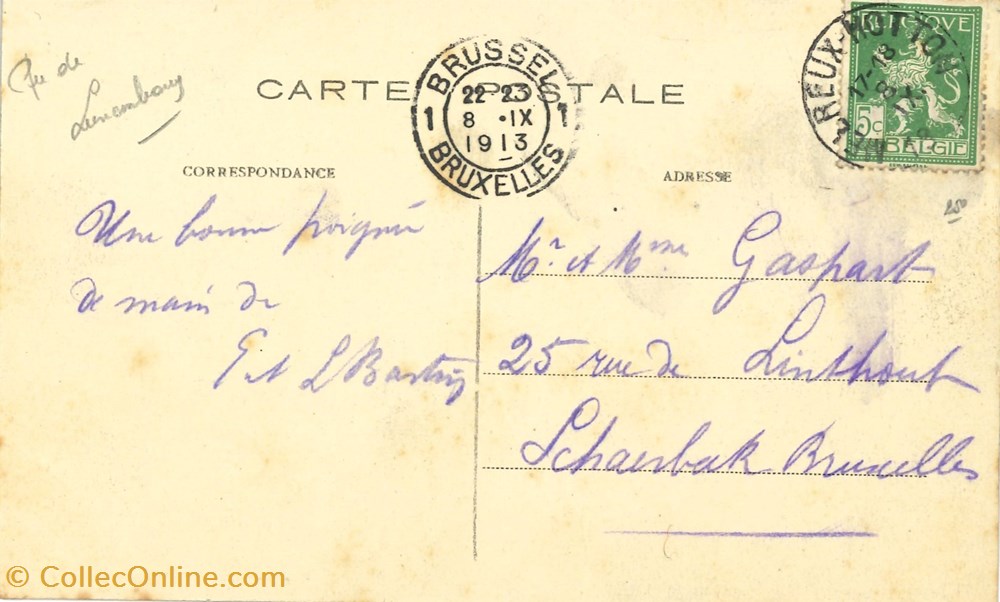 Pré de
Luxembourg
CARTE POSTALE
CORRESPONDANCE
BRUSSEL
22-23
1 8 ·IX 1
1913
BRUXELLES
REUX-MOTTON
17-18
BELGIQUE
5c
BELGIË
ADRESSE
250
Une bonne poignée
de main de
E et L
Mr. et Mme Gaspart
25 rue de Linthout
Schaerbeek Bruxelles
© CollecOnline.com